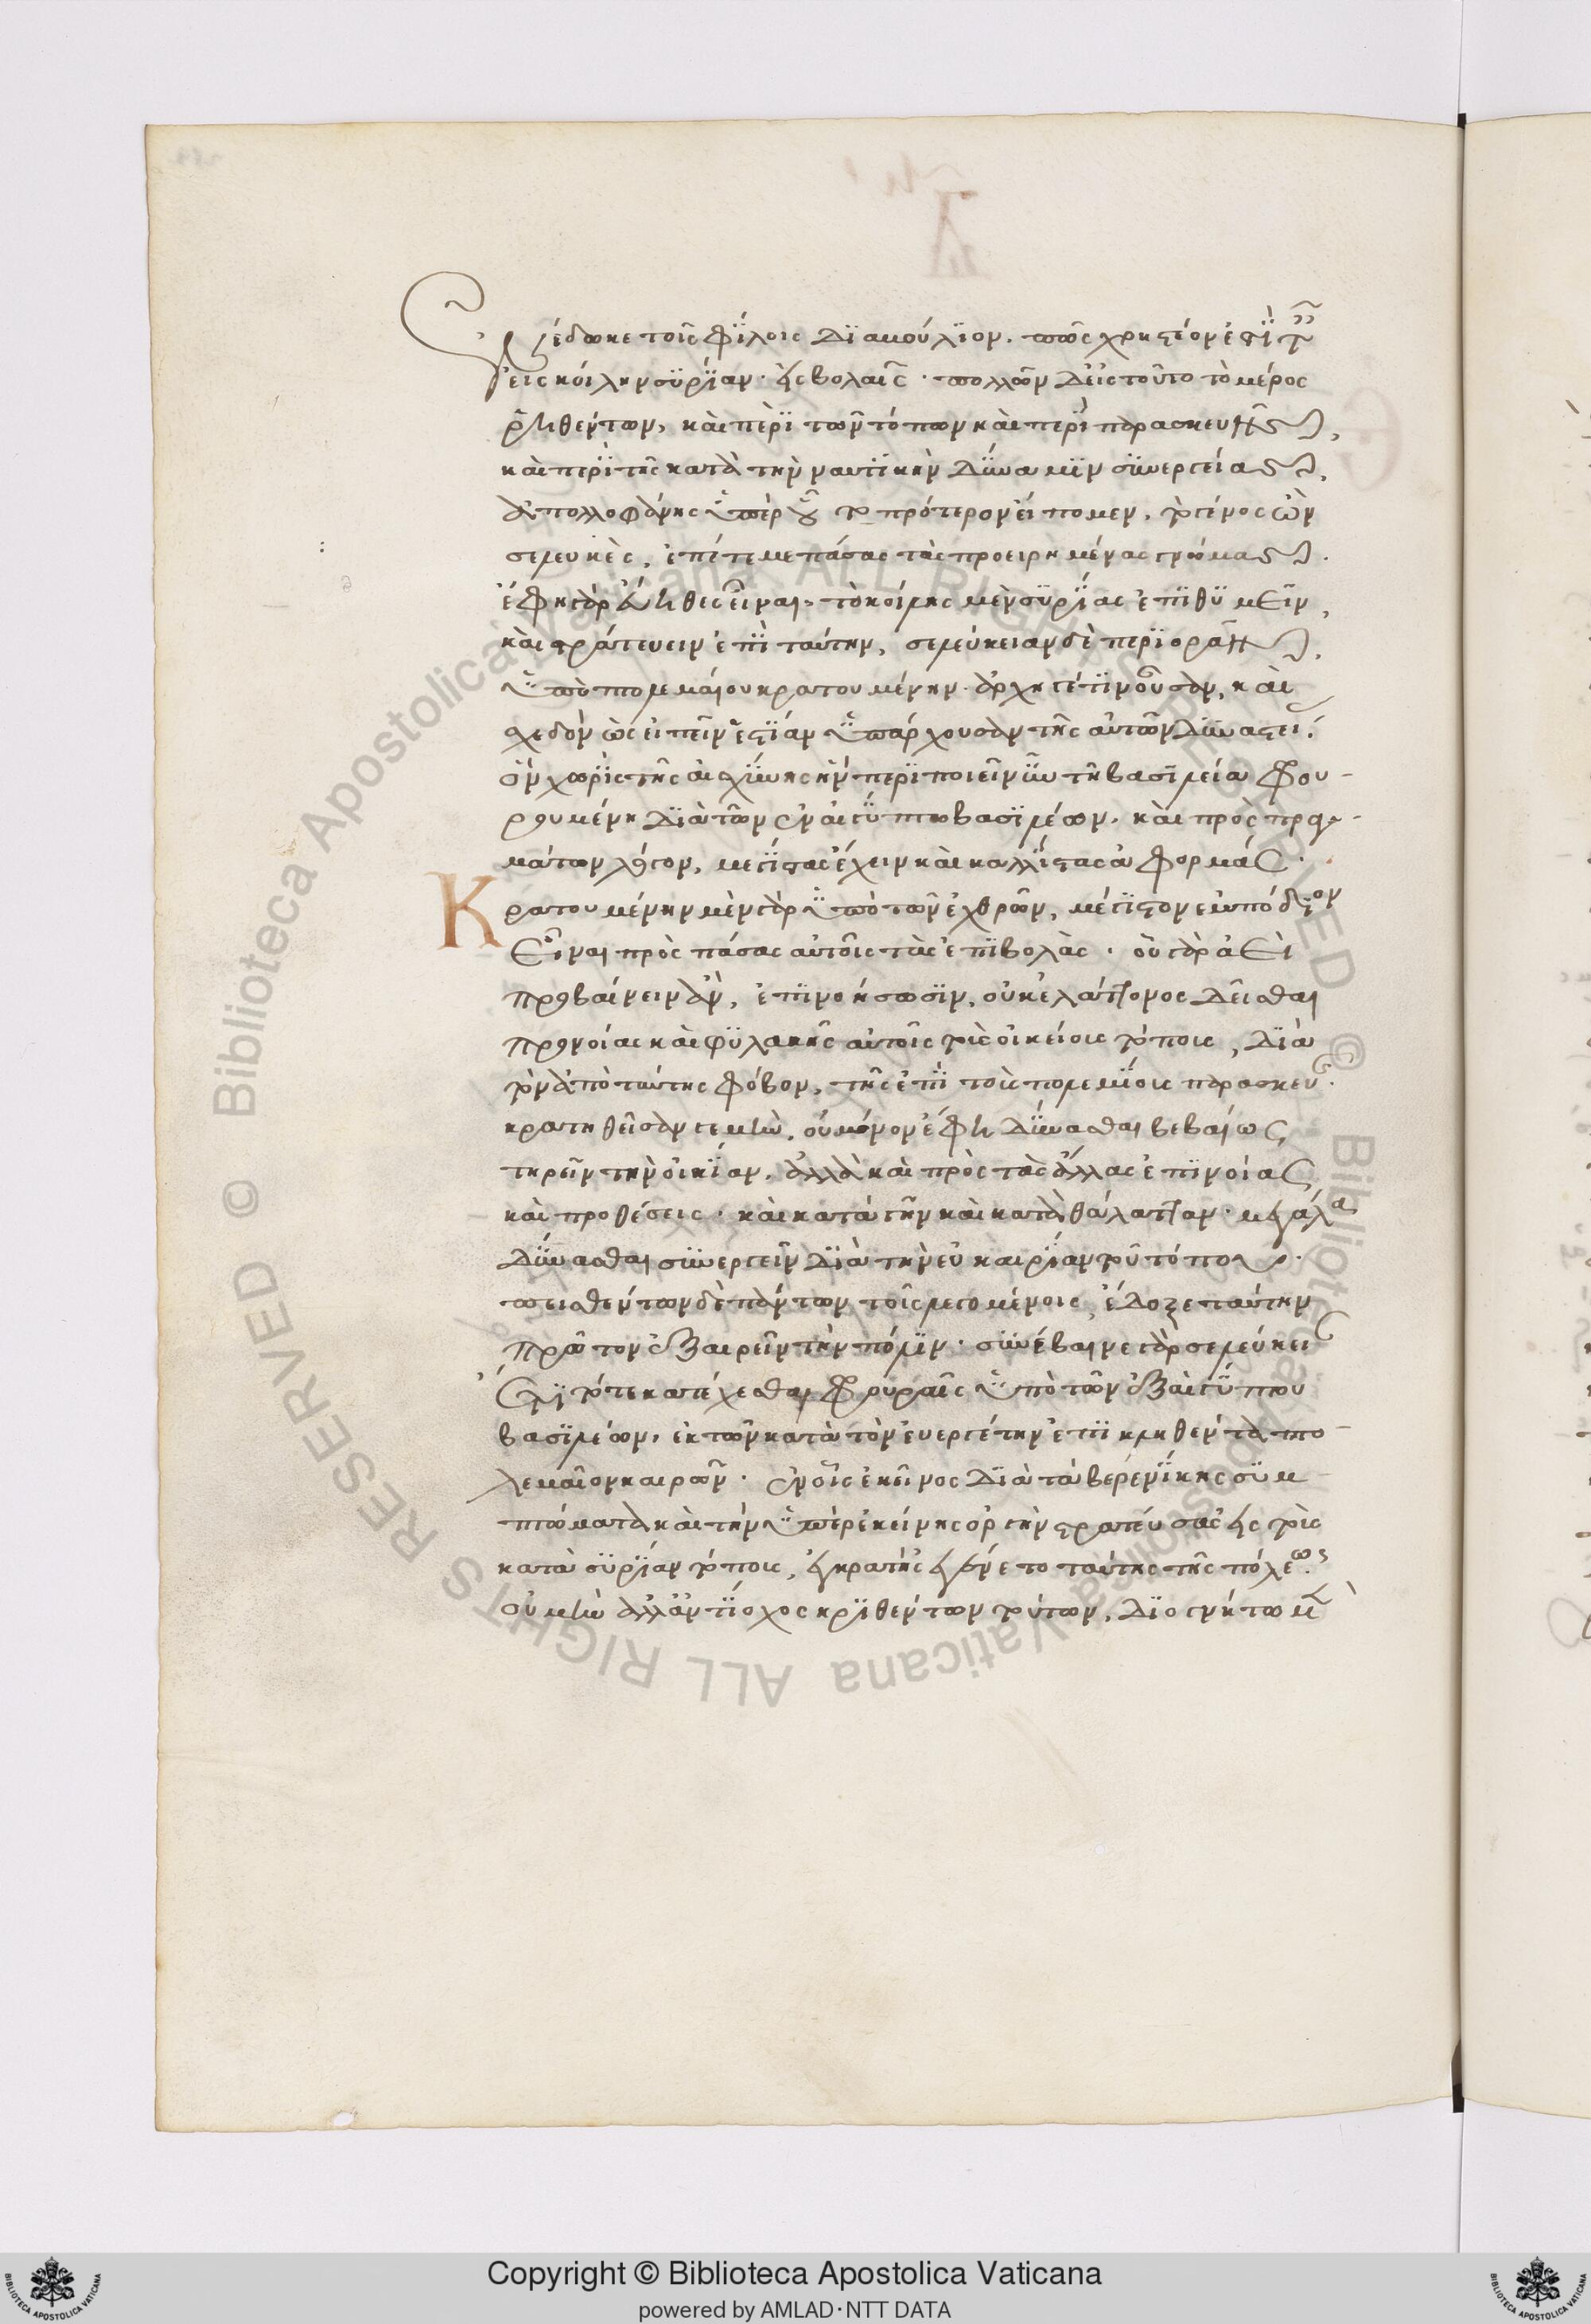 ἀνέδωκε τοῖς φίλοις διαβούλιον. πῶς χρηστέον ἐστὶ ταῖς
εἰς κοίλην συρίαν ἐσβολαῖς. πολλῶν δ' εἰς τοῦτο τὸ μέρος
ῥηθέντων, καὶ περὶ τῶν τόπων καὶ περὶ παρασκευῆς,
καὶ περὶ τῆς κατὰ τὴν ναυτικὴν δύναμιν συνεργείας,
ἀπολλοφάνης ὑπὲρ οὗ καὶ πρότερον εἴπομεν, τὸ γένος ὢν
σελευκεὺς, ἐπέτεμε πάσας τὰς προειρημένας γνώμας.
ἔφη γὰρ εὔηθες εἶναι, τὸ κοίλης μὲν συρίας ἐπιθυμεῖν,
καὶ στρατεύειν ἐπὶ ταύτην, σελεύκειαν δὲ περιορᾶν,
ὑπὸ πτολεμαίου κρατουμένην. ἀρχηγέτιν οὖσαν, καὶ
σχεδὸν ὡς εἰπεῖν ἑστίαν ὑπάρχουσαν τῆς αὐτῶν δυναστεί.
ἣν χωρὶς τῆς αἰσχύνης ἣν περιποιεῖν νῦν τῇ βασιλείᾳ φρου-
ρουμένη διὰ τῶν ἐν αἰγύπτῳ βασιλέων. καὶ πρὸς πραγ-
μάτων λόγον, μεγίστας ἔχειν καὶ καλλίστας ἀφορμάς.
Κρατουμένην μὲν γὰρ ὑπὸ τῶν ἐχθρῶν, μέγιστον ἐμπόδιον
εἶναι πρὸς πάσας αὐτοῖς τὰς ἐπιβολὰς. οὗ γὰρ ἀεὶ
προβαίνειν ἂν, ἐπινοήσωσιν, οὐκ ἐλάττονος δεῖσθαι
προνοίας καὶ φυλακῆς αὐτοῖς τοὺς οἰκείους τόπους, διὰ
τὸν ἀπὸ ταύτης φόβον, τῆς ἐπὶ τοὺς πολεμίους παρασκευ.
κρατηθεῖσάν γε μὴν, οὐ μόνον ἔφη δύνασθαι βεβαίως
τηρεῖν τὴν οἰκίαν, ἀλλὰ καὶ πρὸς τὰς ἄλλας ἐπινοίας
καὶ προθέσεις. καὶ κατὰ γῆν καὶ κατὰ θάλατταν. μεγάλα
δύνασθαι συνεργεῖν διὰ τὴν εὐκαιρίαν τοῦ τόπου.
πεισθέντων δὲ πάντων τοῖς λεγομένοις, ἔδοξε ταύτην
πρῶτον ἐξαιρεῖν τὴν πόλιν. συνέβαινε γὰρ σελεύκει
ἔτι τότε κατέχεσθαι φρουραῖς ὑπὸ τῶν ἐξ αἰγύπτου
βασιλέων, ἐκ τῶν κατὰ τὸν εὐεργέτην ἐπικληθέντα πτο-
λεμαῖον καιρῶν. ἐν οἷς ἐκεῖνος διὰ τὰ βερενίκης συμ-
πτώματα καὶ τὴν ὑπὲρ ἐκείνης ὀργὴν στρατεύσας εἰς τοὺς
κατὰ συρίαν τόπους, ἐγκρατὴς ἐγένετο ταύτης τῆς πόλεως.
οὐ μὴν ἀλλ' ἀντίοχος κριθέντων τούτων, διογνήτῳ μὲν
Copyright © Biblioteca Apostolica Vaticana
powered by AMLAD·NTT DATA